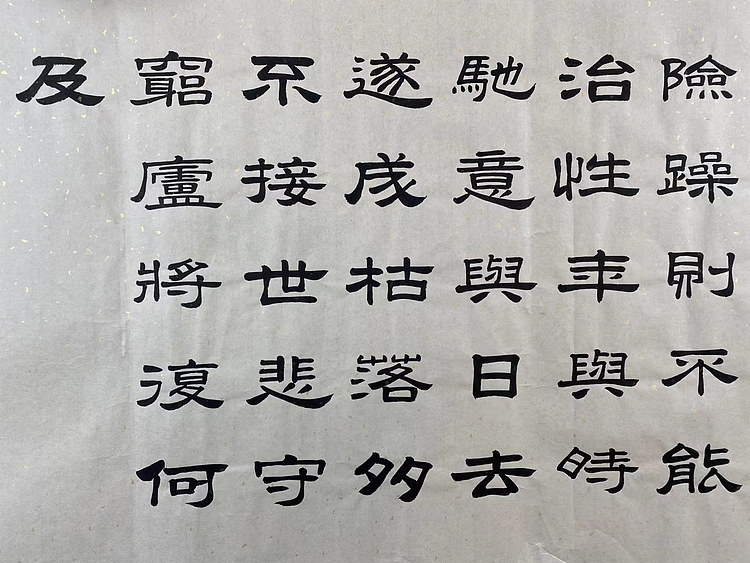 險躁則不能
治性年與時
馳意與日去
遂成枯落多
不接世悲守
窮廬將復何
及